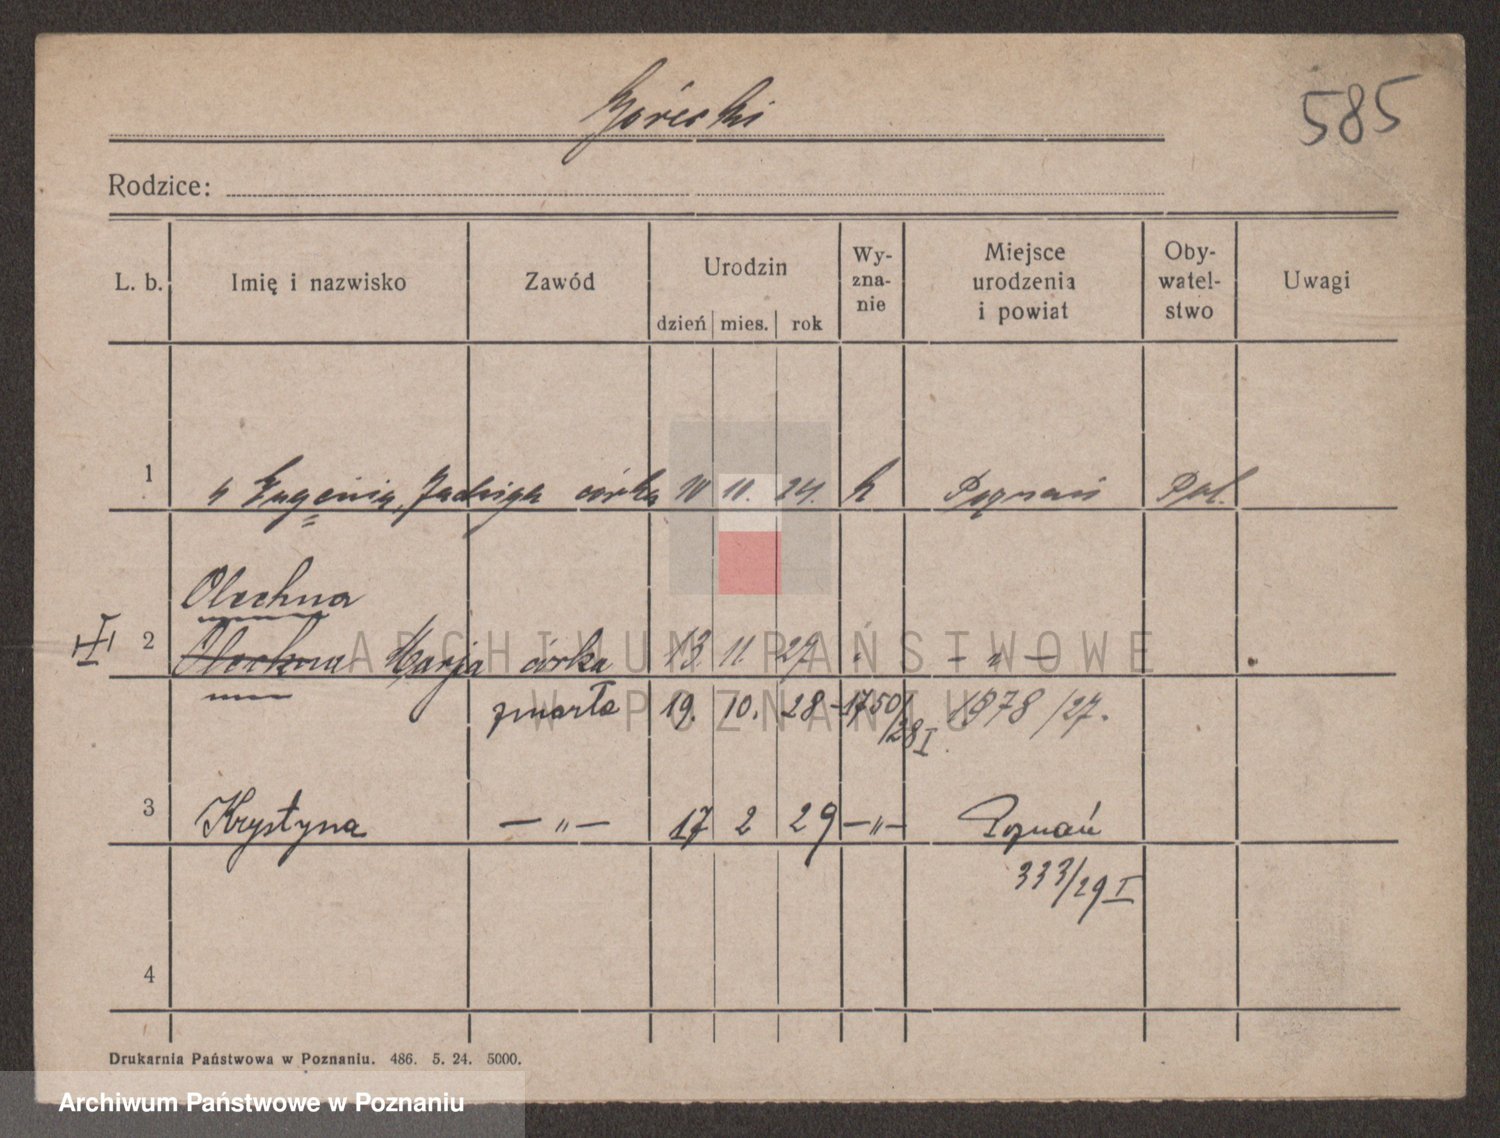 Górecki
585
Rodzice:
L. b. Imię i nazwisko Zawód Urodzin dzień mies. rok Wy-zna-nie Miejsce urodzenia i powiat Oby-watel-stwo Uwagi
1 Eugenia, Jadwiga córka 10 11. 24. k Poznań Pol.
Olechna
2 Olechna Marja córka 13. 11. 27. " - " -
zmarła 19. 10. 28 - 1750/28 I 1978/27.
3 Krystyna - " - 17 2 29 - " - Poznań
333/29 I
4
Drukarnia Państwowa w Poznaniu. 486. 5. 24. 5000.
ARCHIWUM PAŃSTWOWE
W POZNANIU
Archiwum Państwowe w Poznaniu